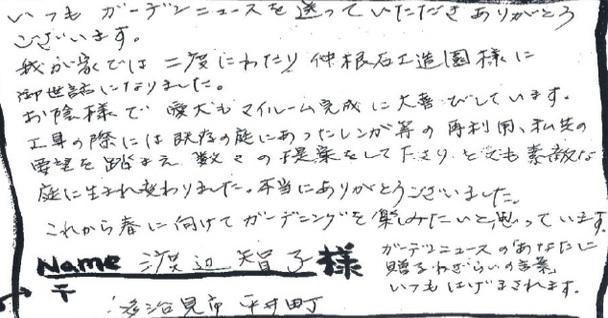 いつも ガーデンニュースを送っていただきありがとう
ございます。
我が家では 二度にわたり 仲根石工造園様に
御世話になりました。
お陰様で 愛犬も マイルーム完成に大喜びしています。
工事の際には 既存の庭にあったレンガ等の 再利用、私共の
要望を踏まえ 数々の提案をして下さり とても素敵な
庭に生まれ変わりました。本当にありがとうございました。
これから春に向けてガーデニングを楽しみたいと思っています。
Name 渡辺智子様
ガーデンニュースの「あなたに
贈るねぎらいの言葉
いつもはげまされます。
〒
多治見市 平井町